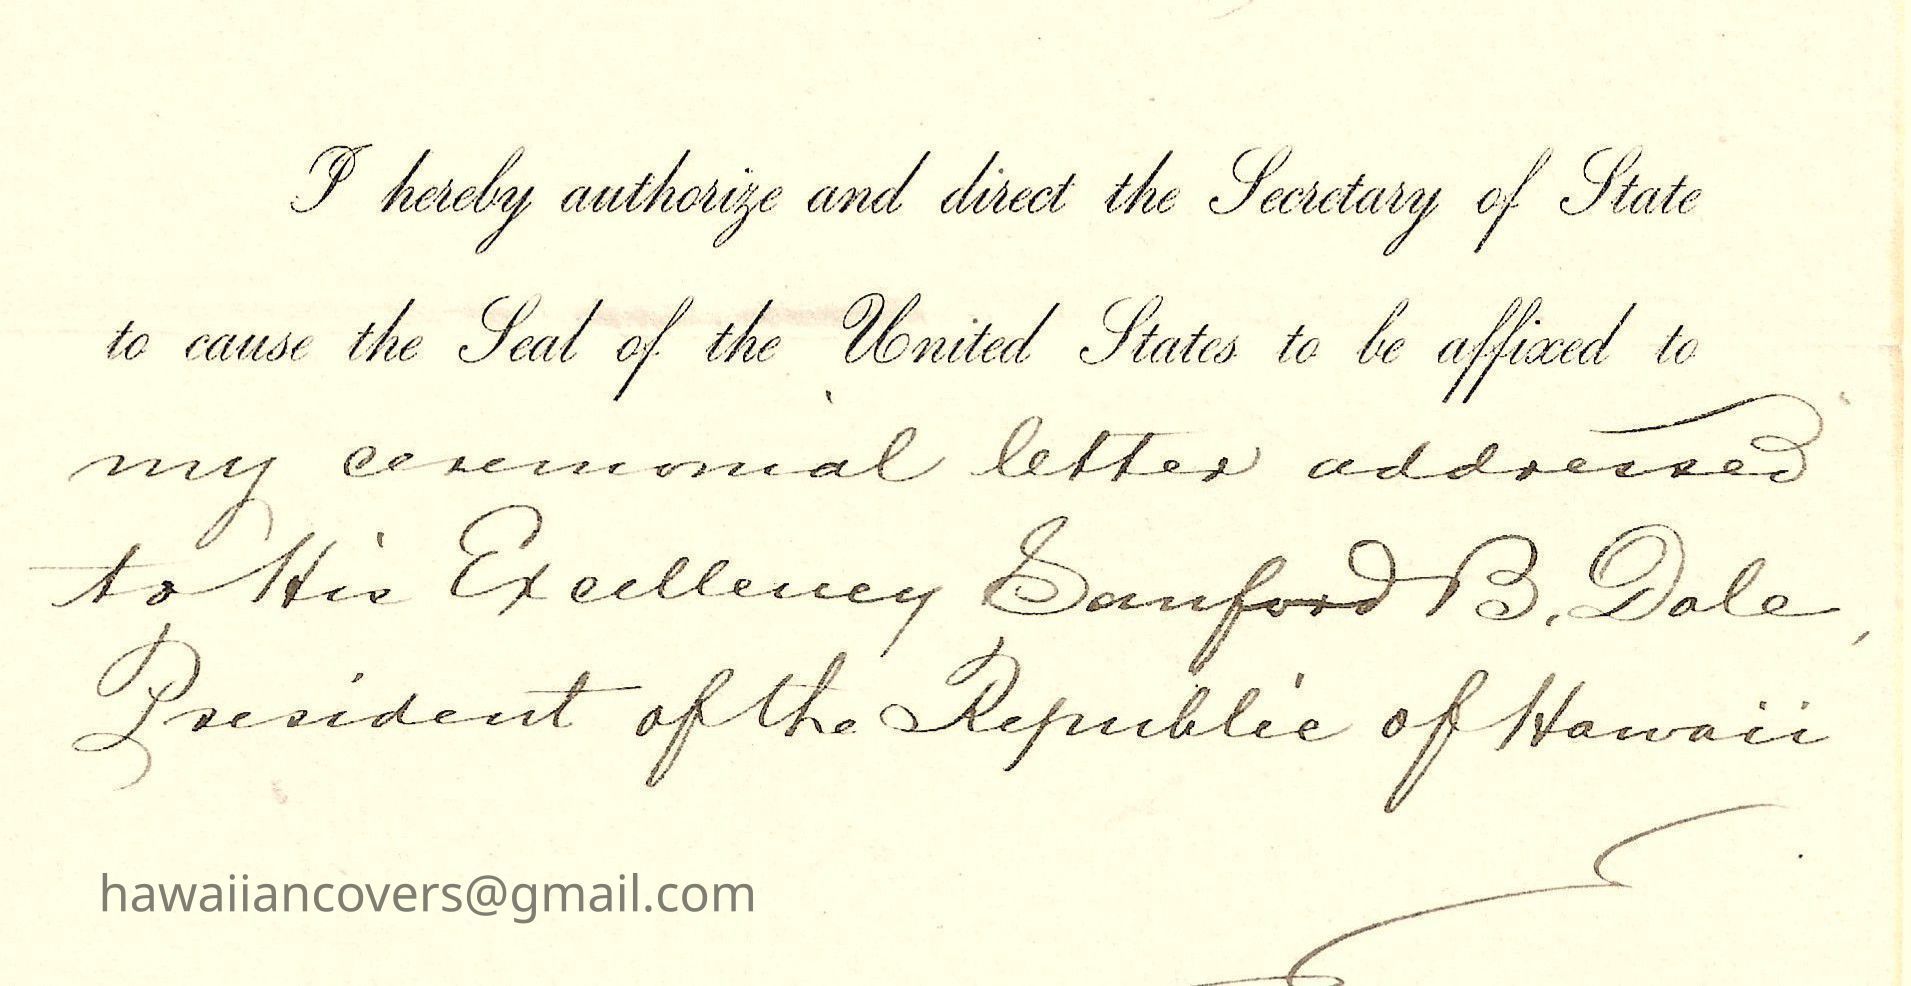 I hereby authorize and direct the Secretary of State
to cause the Seal of the United States to be affixed to
my ceremonial letter addressed
to His Excellency Sanford B. Dole,
President of the Republic of Hawaii
hawaiiancovers@gmail.com